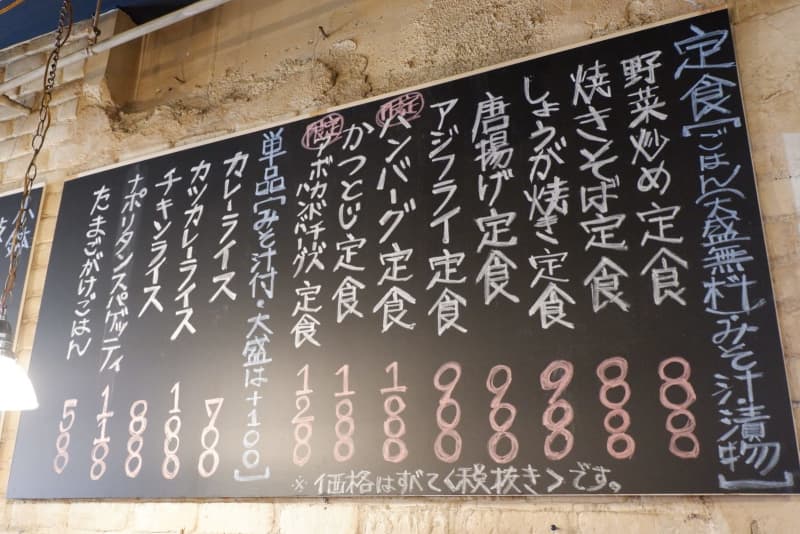 定食[ごはん(大盛無料)みそ汁漬物]
野菜炒め定食 800
焼きそば定食 800
しょうが焼き定食 900
唐揚げ定食 900
アジフライ定食 900
限定 ハンバーグ定食 1000
かつとじ定食 1000
限定 アボカドチーズハンバーグ定食 1200
単品[みそ汁付・大盛は+100]
カレーライス 700
カツカレーライス 1000
チキンライス 800
ナポリタンスパゲッティ 1100
たまごがけごはん 500
※価格はすべて<税抜き>です。
小鉢